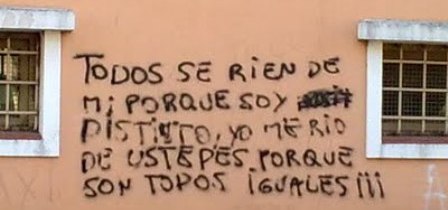 TODOS SE RIEN DE
MI PORQUE SOY
DISTINTO, YO ME RIO
DE USTEDES PORQUE
SON TODOS IGUALES ¡¡¡